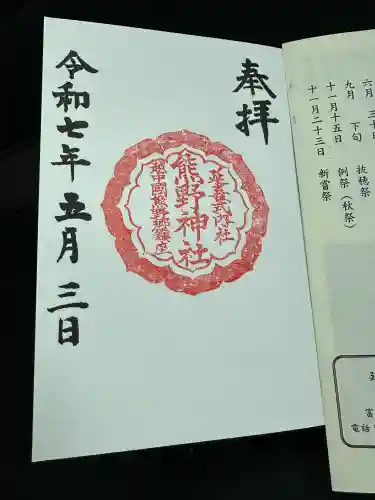 奉拝
延喜式内社
熊野神社
越中國熊野郷鎮座
令和七年五月三日
六月 三十日
九月 下旬 抜穂祭
十一月十五日 例祭(秋祭)
十一月二十三日 新嘗祭
富
電話